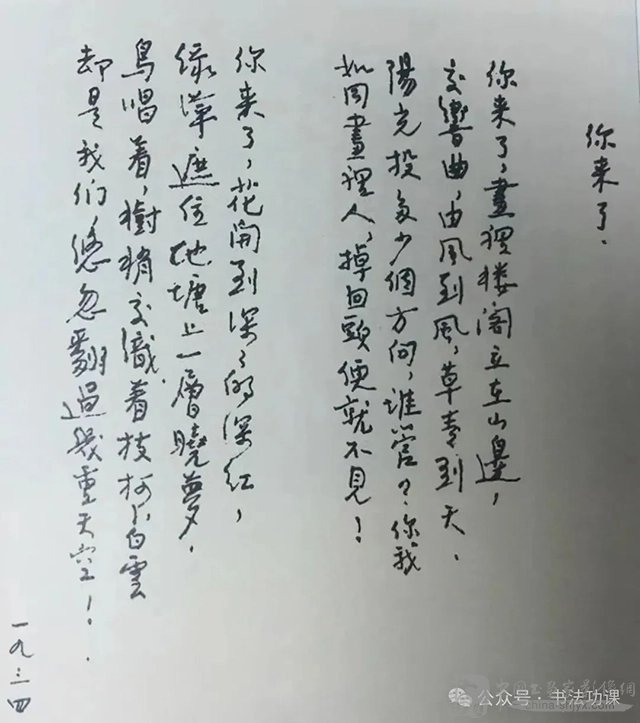 你来了.
你来了,畫裡楼阁立在山邊,
交響曲,由風到風,草青到天.
陽光投多少個方向,誰管?你,我
如同畫裡人,掉回頭便就不見!
你来了,花開到深深的深红,
绿萍遮住池塘上一層曉夢.
鳥唱着,樹梢交織着枝柯,白雲
却是我们,悠忽翻過幾重天空!
一九三四
公众号 · 书法功课
china-shjyx.com